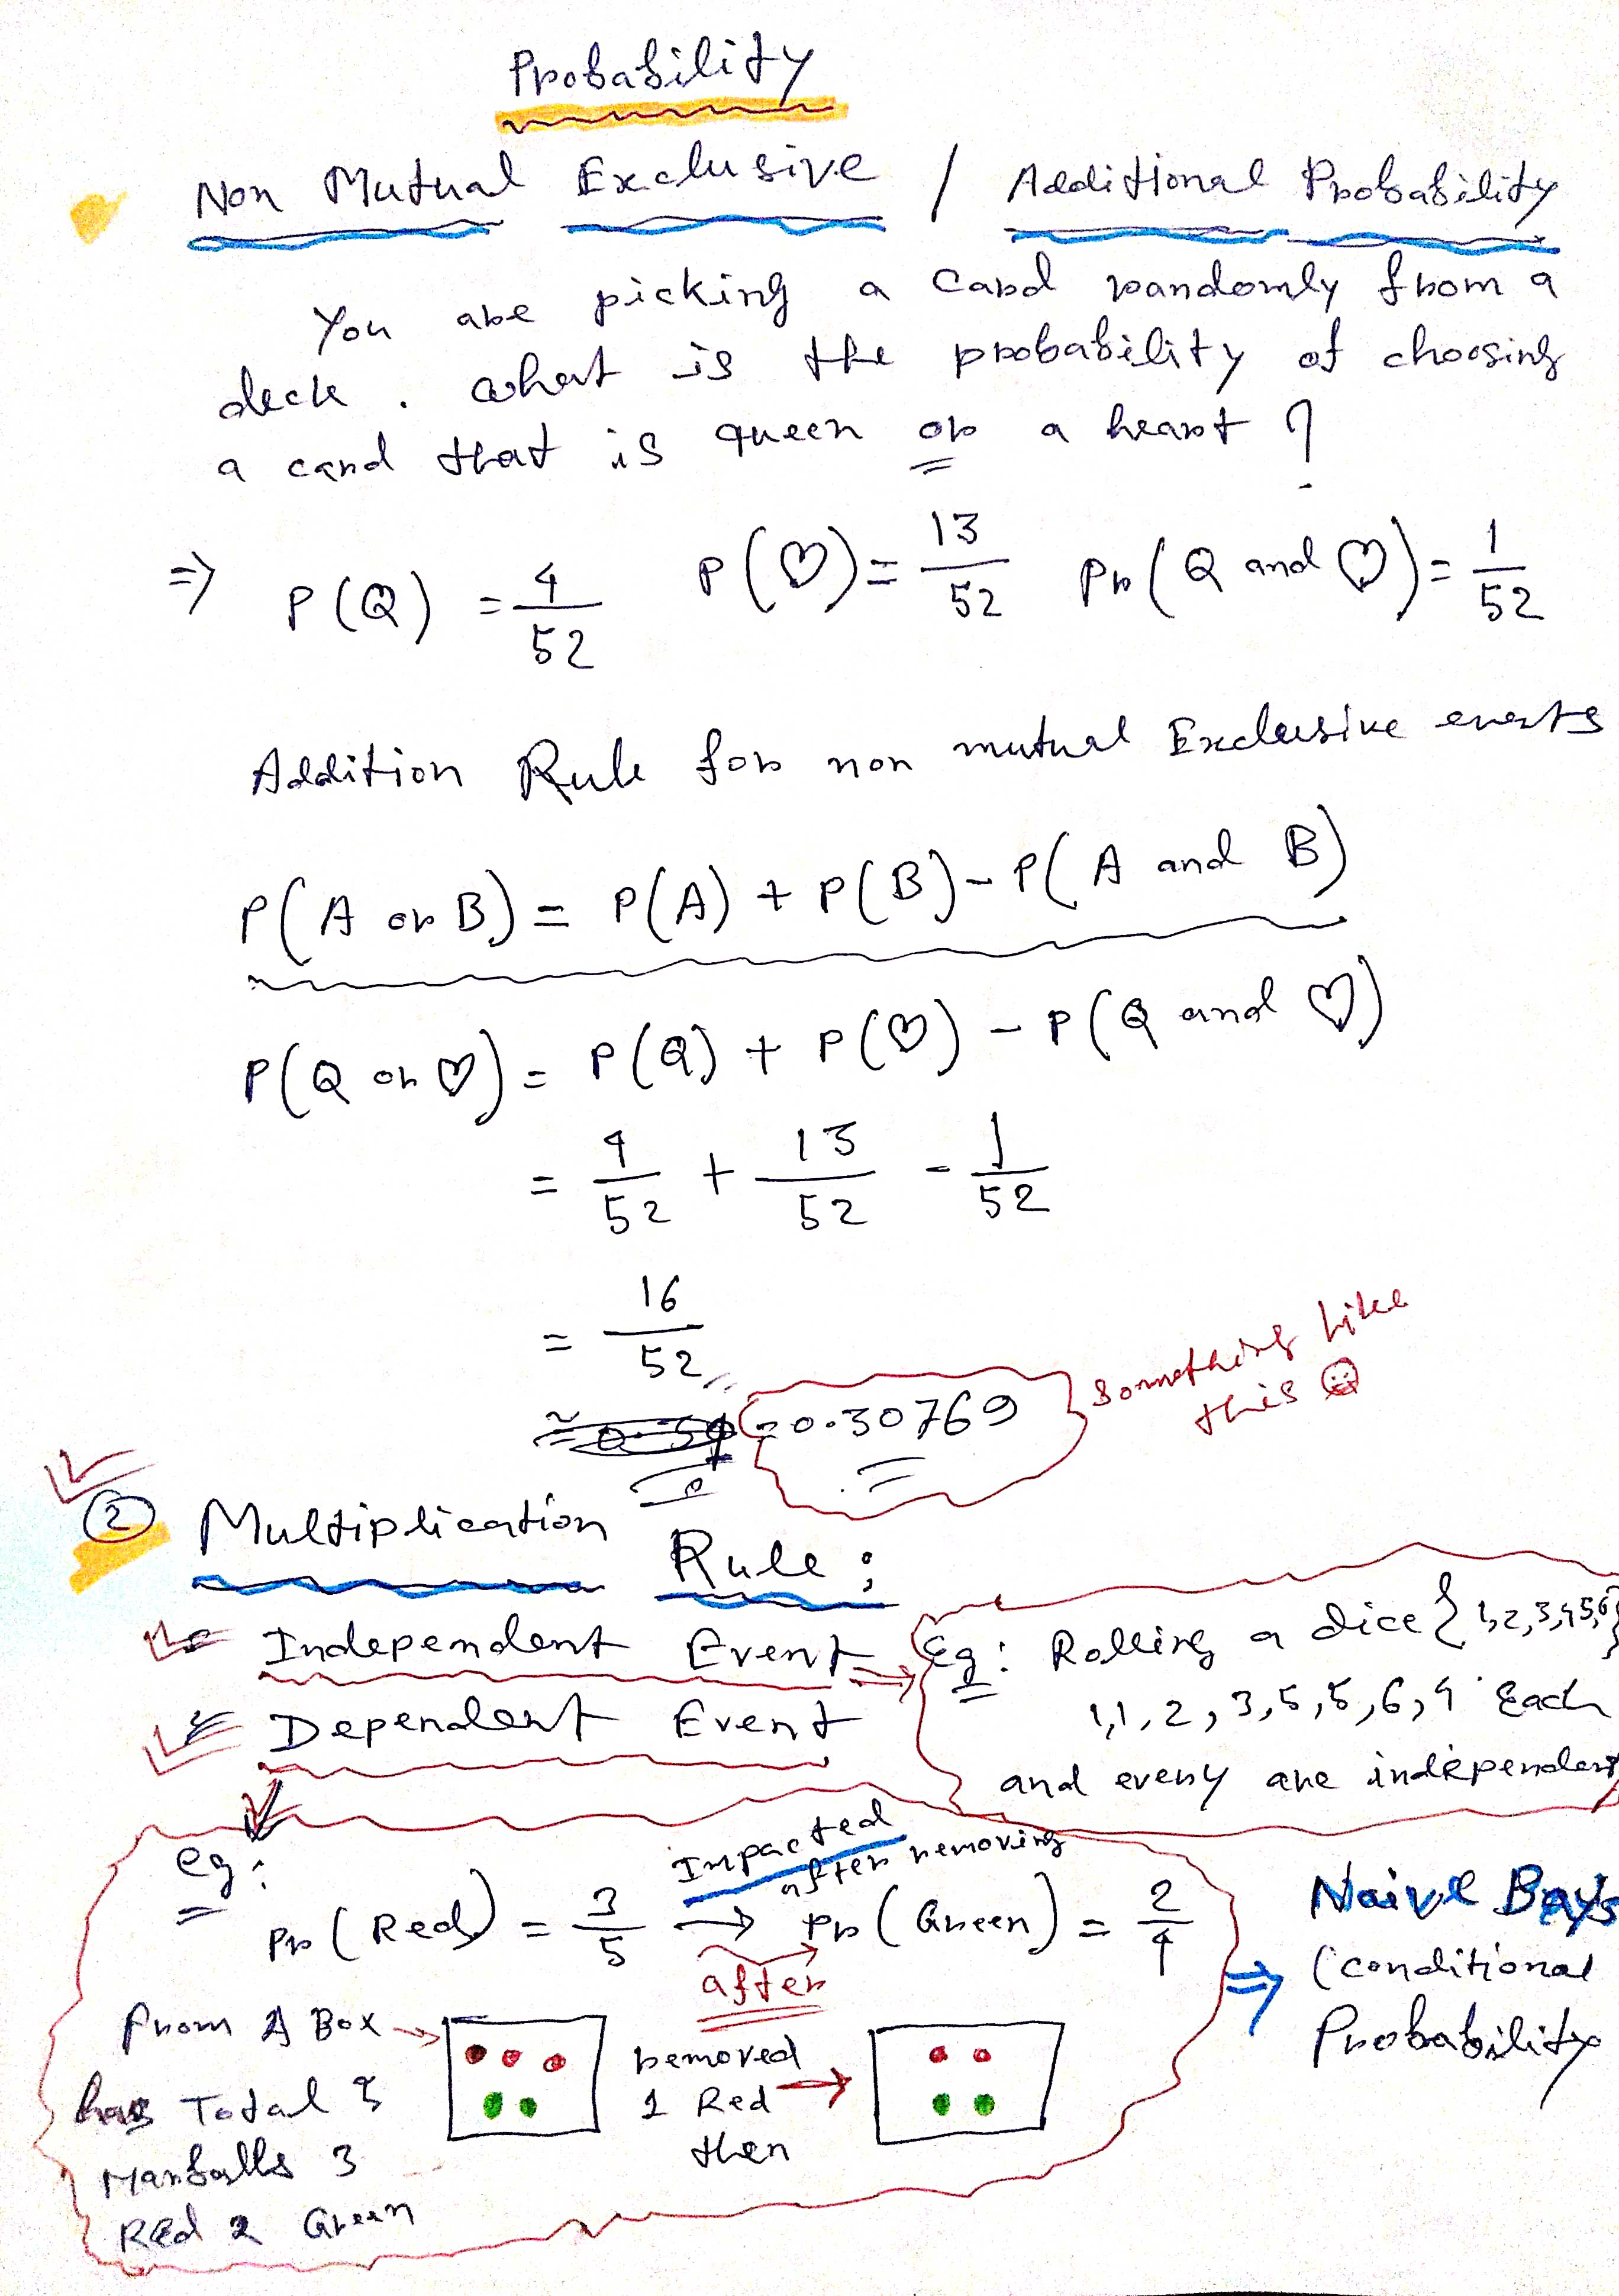 Probability
Non Mutual Exclusive / Additional Probability
You are picking a card randomly from a
deck . what is the probability of choosing
a card that is queen or a heart ?
⇒ P(Q) = 4/52 P(♡) = 13/52 Pr(Q and ♡) = 1/52
Addition Rule for non mutual Exclusive events
P(A or B) = P(A) + P(B) - P(A and B)
P(Q or ♡) = P(Q) + P(♡) - P(Q and ♡)
= 4/52 + 13/52 - 1/52
= 16/52
= 0.30769
Something like
this ☺
② Multiplication Rule :
Independent Event ⇒
Eg : Rolling a dice {1,2,3,4,5,6}
1,1,2,3,5,5,6,4 Each
and every are independent
Dependent Event
eg :
Impacted
after removing
Pr(Red) = 3/5 → Pr(Green) = 2/4
after
From A Box →
has Total 5
Marballs 3
Red 2 Green
removed
1 Red →
then
⇒ Naive Bays
(conditional
Probability